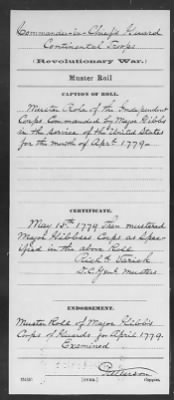 Commander-in-Chief's Guard
Continental Troops
(Revolutionary War.)
Muster Roll
CAPTION OF ROLL.
Muster Role of the Independent
Corps Commanded by Major Gibbs
in the service of the United States
for the month of Aprl. 1779.
CERTIFICATE.
May 15th 1779 then mustered
Major Gibbses Corps as Spec-
ified in the above Roll
Richd.
D.C. Genl. Musters
ENDORSEMENT.
Muster Role of Major Gibbs
Corps of Guards for April 1779.
Examined
Patterson
Copyist.